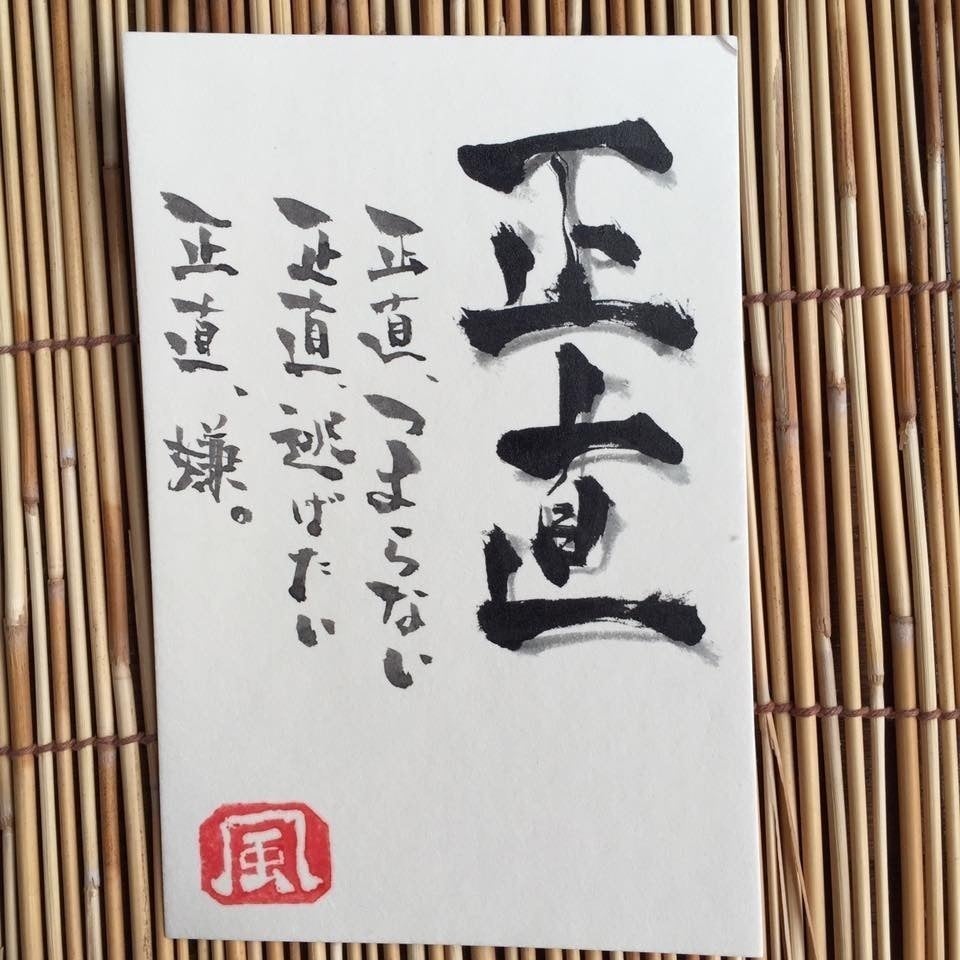 正直
正直、つまらない
正直、逃ばたい
正直、嫌。
風